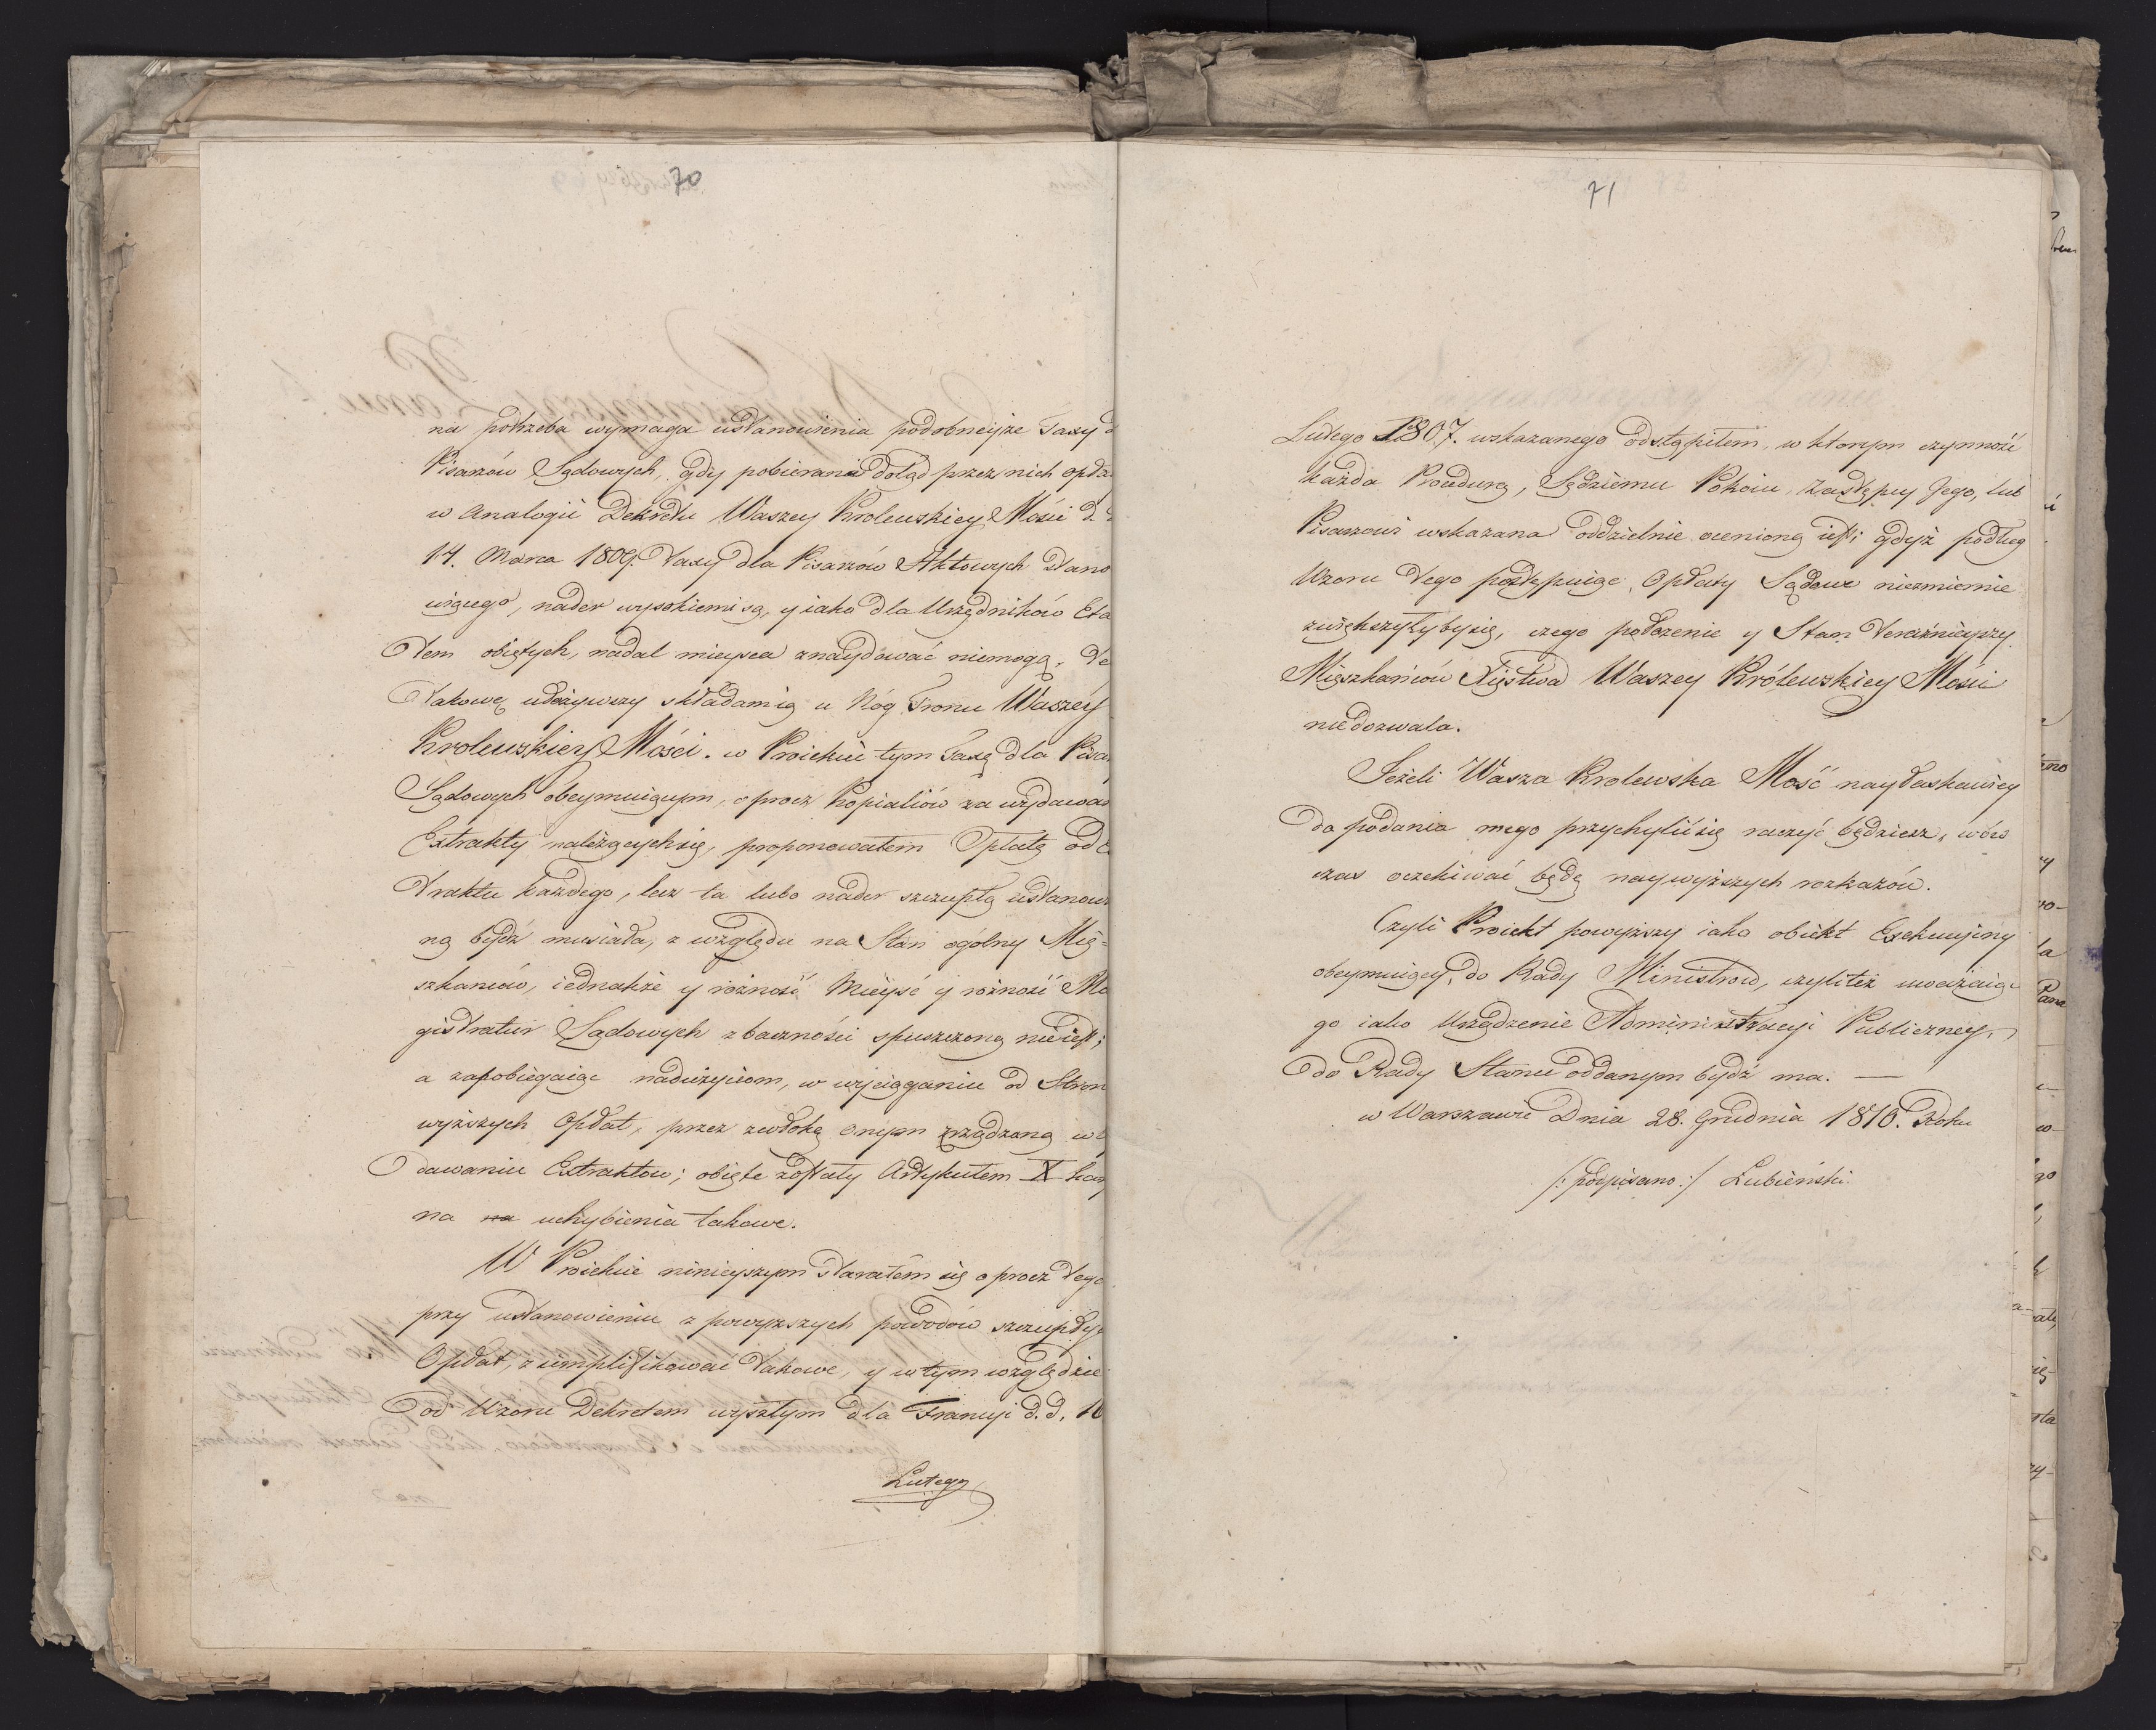 70
na potrzeba wymaga ustanowienia podobneyże Taxy d
Pisarzów Sądowych, gdy pobierania dotąd przez nich opła
w Analogii Dekretu Waszey Krolewskiey Mości d. d
14. Marca 1809. Taxy dla Pisarzów Aktowych stano
wiącego, nader wysokiemi są, y iako dla Urzędników Eta
tem obiętych, nadal mieysca znaydować niemogą.
Takowę ułożywszy składam ią u Nóg Tronu Waszey
Krolewskiey Mości. w Proiekcie tym Taxę dla Pisar
Sądowych obeymuiącym, oprocz Kopialiów za wydawan
Extrakty należących się, proponowałem Opłatę od Ex
traktu każdego, lecz ta lubo nader szczupłą ustanowio
ną bydź musiała, z względu na Stan ogólny Mię-
szkańców, iednakże y rożność Mieysc y rożność Ma
gistratur Sądowych z baczności spuszczoną nie iest;
a zapobiegaiąc nadużyciom, w wyciąganiu od Stron
wyższych Opłat, przez zwłokę onym zrządzoną w
dawaniu Extraktów; obięte zostały Artykułem X kary
na na uchybienia takowe.
W Proiekcie ninieyszym starałem się oprocz tego
przy ustanowieniu z powyższych powodów szczupłych
Opłat, zsimplifikować takowe, y w tym względzie
od Wzoru Dekretem wyszłym dla Francyi d. d. 16
Lutego
71
Lutego 1807. wskazanego odstąpiłem, w ktorym czynność
każda Procedurą, Sędziemu Pokoiu, Zastępcy Jego, lub
Pisarzowi wskazana oddzielnie ocenioną iest; gdyż podług
Wzoru tego postępuiąc, Opłaty Sądowe niezmiernie
zwiększyłyby się, czego położenie y Stan teraźnieyszy
Mięszkańców Xięstwa Waszey Królewskiey Mości
niedozwala.
Jeżeli Wasza Krolewska Mość nayłaskawiey
do podania mego przychylić się raczyć będziesz, wów
czas oczekiwać będę naywyższych rozkazów.
Czyli Proiekt powyższy iako obiekt Exekucyiny
obeymuiący, do Rady Ministrow, czyliteż uważaiąc
go iako Urządzenie Administracyi Publiczney,
do Rady Stanu oddanym bydź ma. —
w Warszawie Dnia 28. Grudnia 1810. Roku
/: podpisano :/ Łubieński.